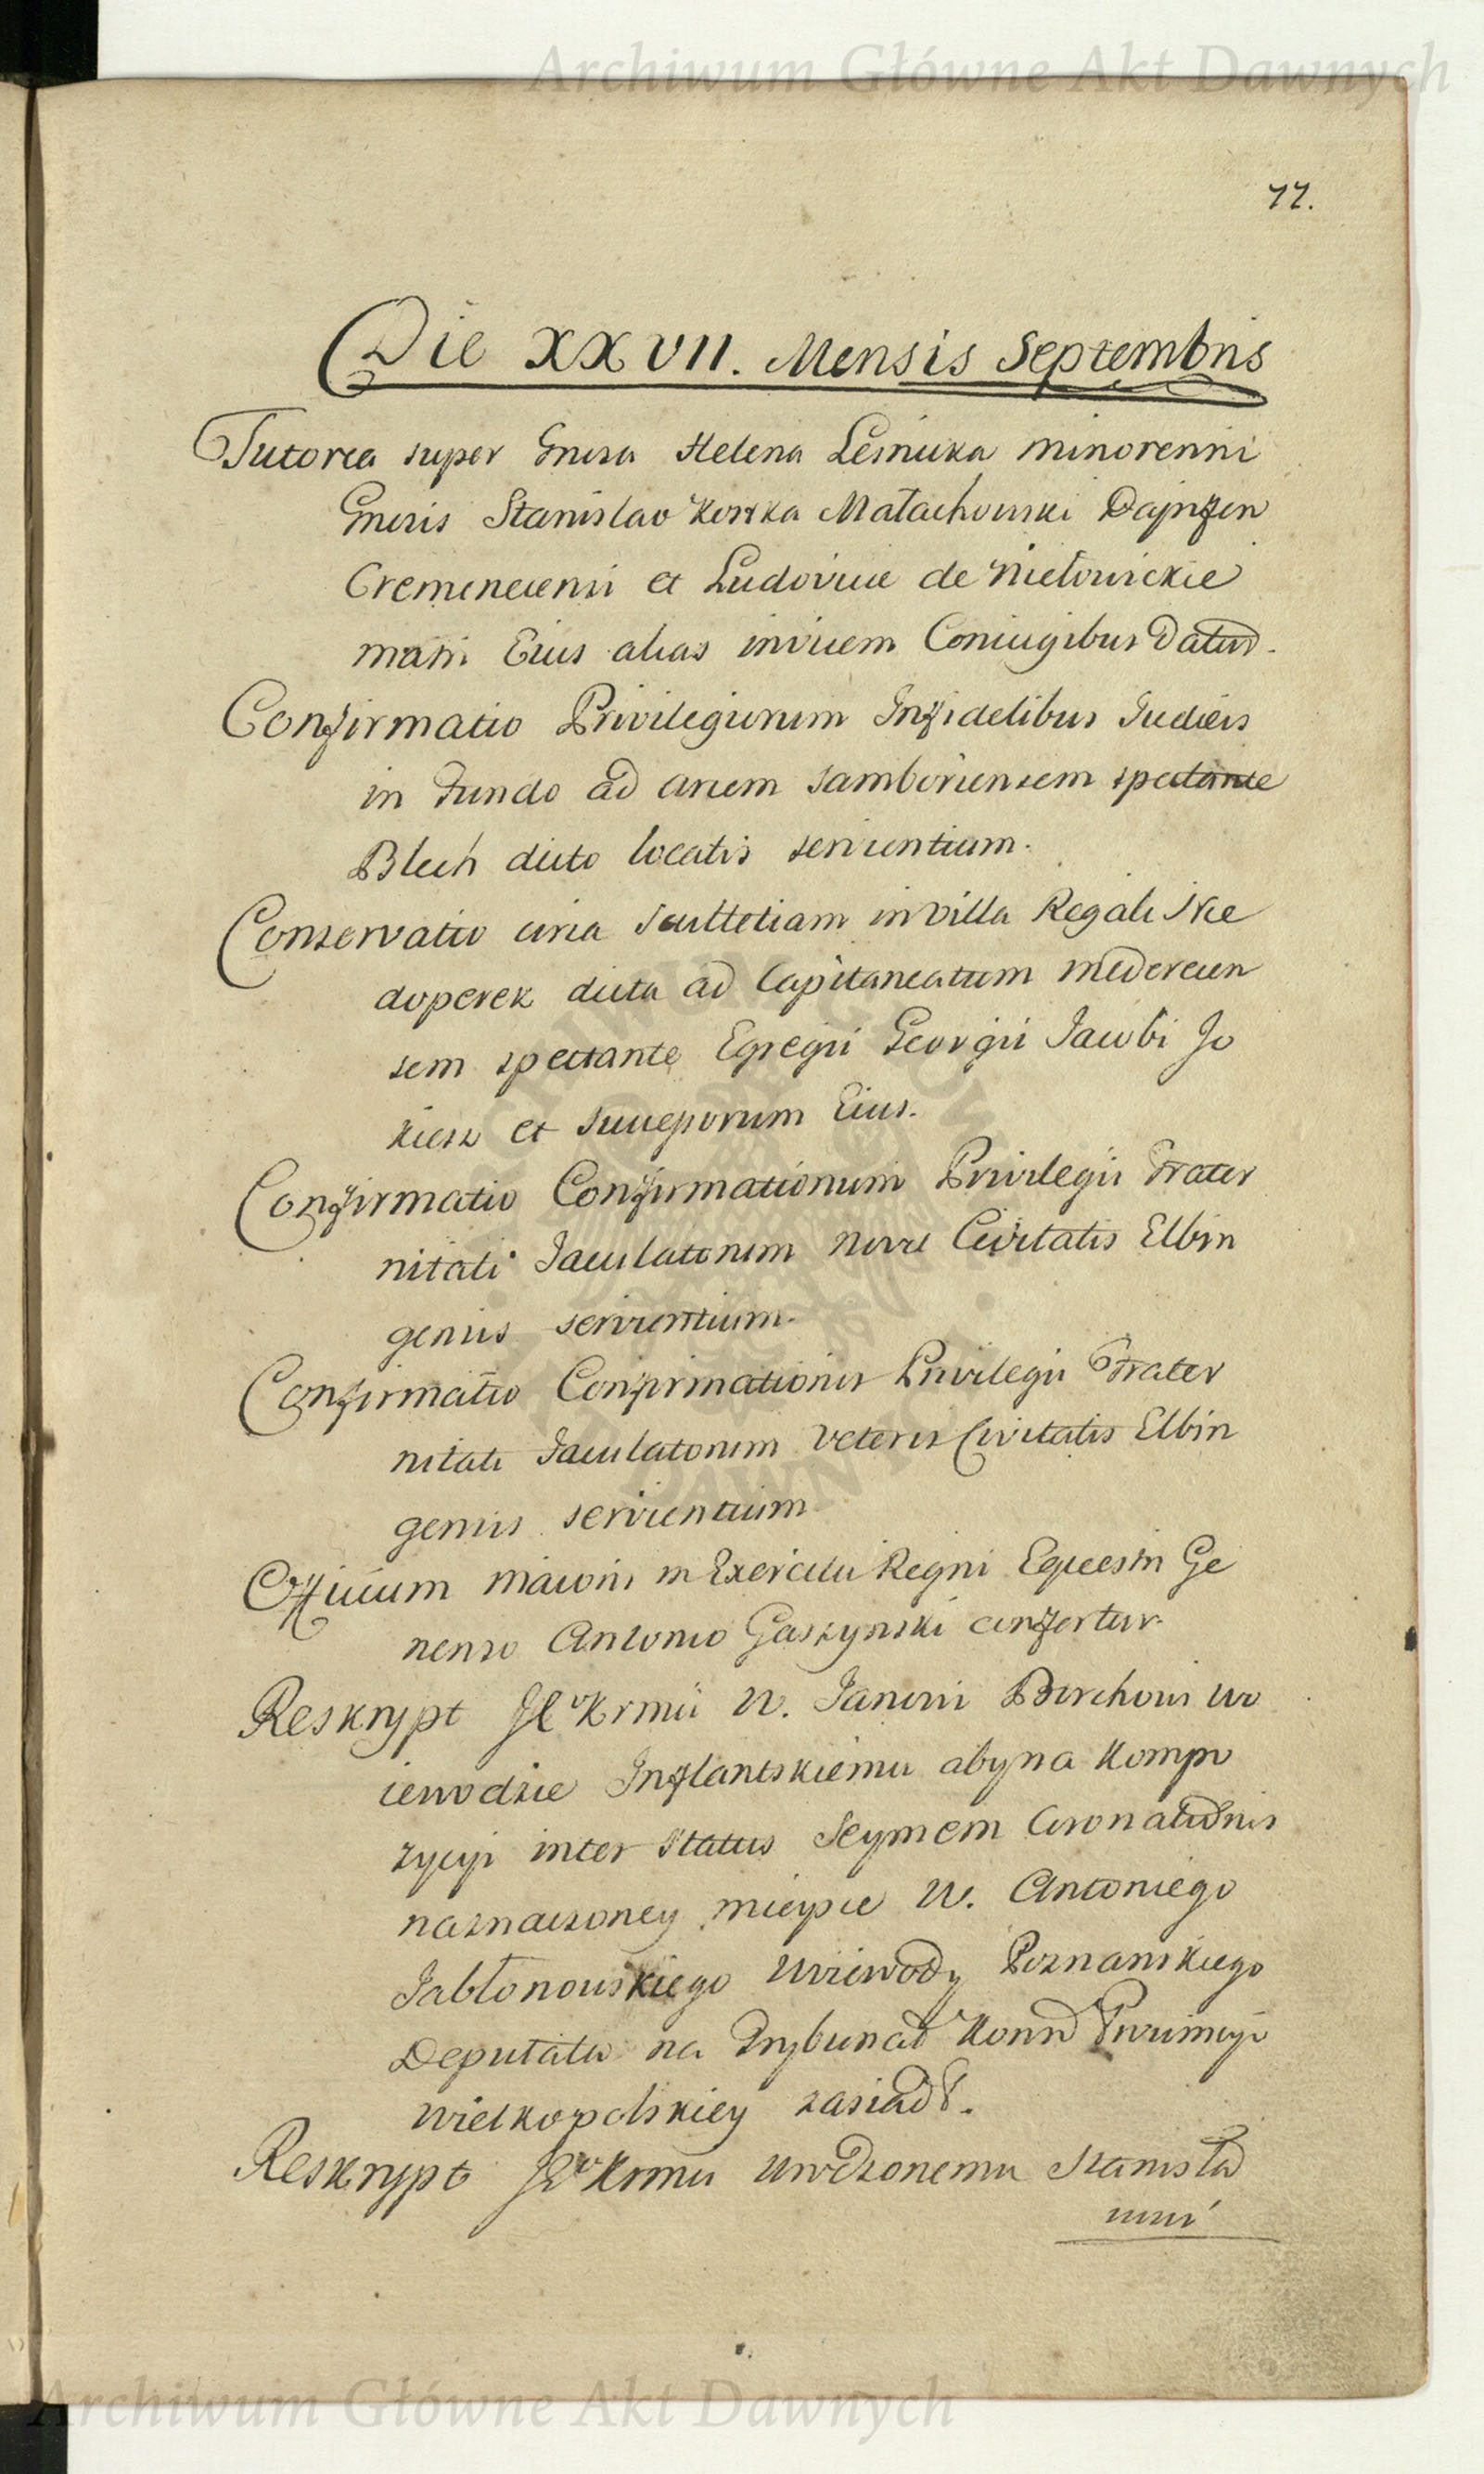 Archiwum Główne Akt Dawnych
77.
Die XXVII. Mensis Septembris
Tutorea super Gnosa Helena Lesnicka minorenni
Gnosis Stanislao Kostka Małachowski Dapif͞en
Cremenecensi et Ludovice de Niełowickie
matri Eius alias invicem Coniugibus Datur.
Confirmatio Privilegiorum Infidelibus Iudæis
in Fundo ad arcem Samboriensem spectante
Blech dicto locatis servientium.
Conservatio circa Scultetiam in Villa Regali Nie
doperek dicta ad Capitaneatum Mederecen
sem spectante Egregii Georgii Iacobi Jo
kiesz et Succeporum Eius.
Confirmatio Confirmationum Privilegii Frater
nitati Iaculatorum novæ Civitatis Elbin
gensis servientium.
Confirmatio Confirmationis Privilegii Frater
nitati Iaculatorum Veteris Civitatis Elbin
gensis servientium
Officium maioris in Exercitu Regni Equestri Ge
neroso Antonio Gaszynski confertur.
Reskrypt JKrMci W. Ianowi Borchowi Wo
iewodzie Inflantskiemu aby na Kompo
zycyi inter Status Seymem Coronationis
naznaczoney mieysce W. Antoniego
Jabłonowskiego Woiewody Poznanskiego
Deputata na Trybunał Koron Prowincyi
Wielkopolskiey zasiadł.
Reskrypt JKrMci Urodzonemu Stanisła
wowi
Archiwum Główne Akt Dawnych